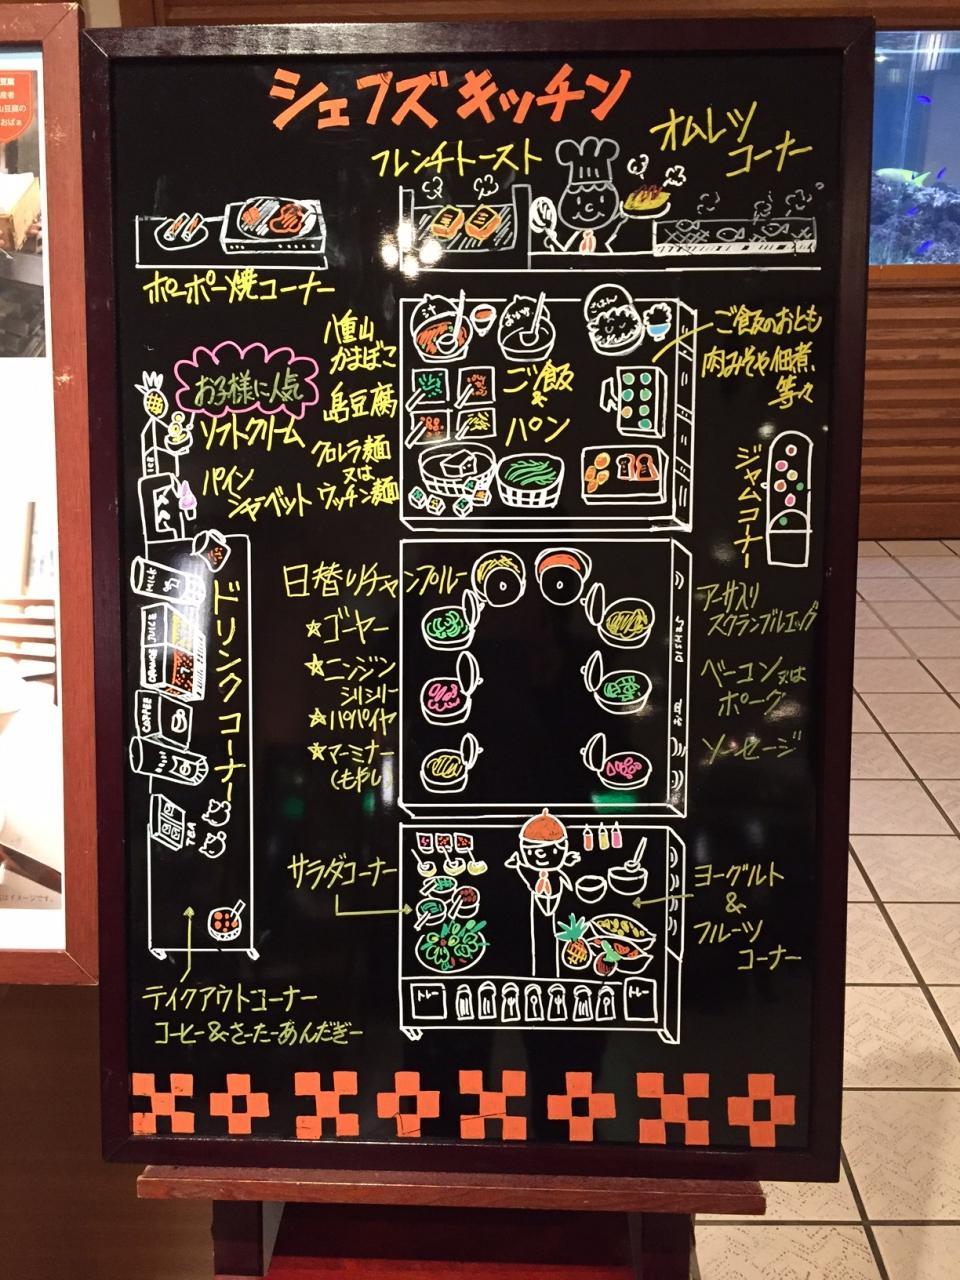 シェフズキッチン
フレンチトースト
オムレツ
コーナー
ポーポー焼コーナー
汁
おかゆ
ごはん
八重山
かまぼこ
島豆腐
クロレラ麺
又は
ウッチン麺
ご飯
&
パン
ご飯のおとも
肉みそや佃煮、
等々
ジャムコーナー
お子様に人気
ソフトクリーム
パイン
シャーベット
ICE
ドリンクコーナー
MILK
ORANGE JUICE
COFFEE
TEA
日替りチャンプルー
☆ゴーヤー
☆ニンジン
シリシリー
☆パパイヤ
☆マーミナー
(もやし)
アーサ入り
スクランブルエッグ
ベーコン又は
ポーク
ソーセージ
DISHES
お皿
サラダコーナー
ヨーグルト
&
フルーツ
コーナー
トレー
トレー
テイクアウトコーナー
コーヒー&さーたーあんだぎー